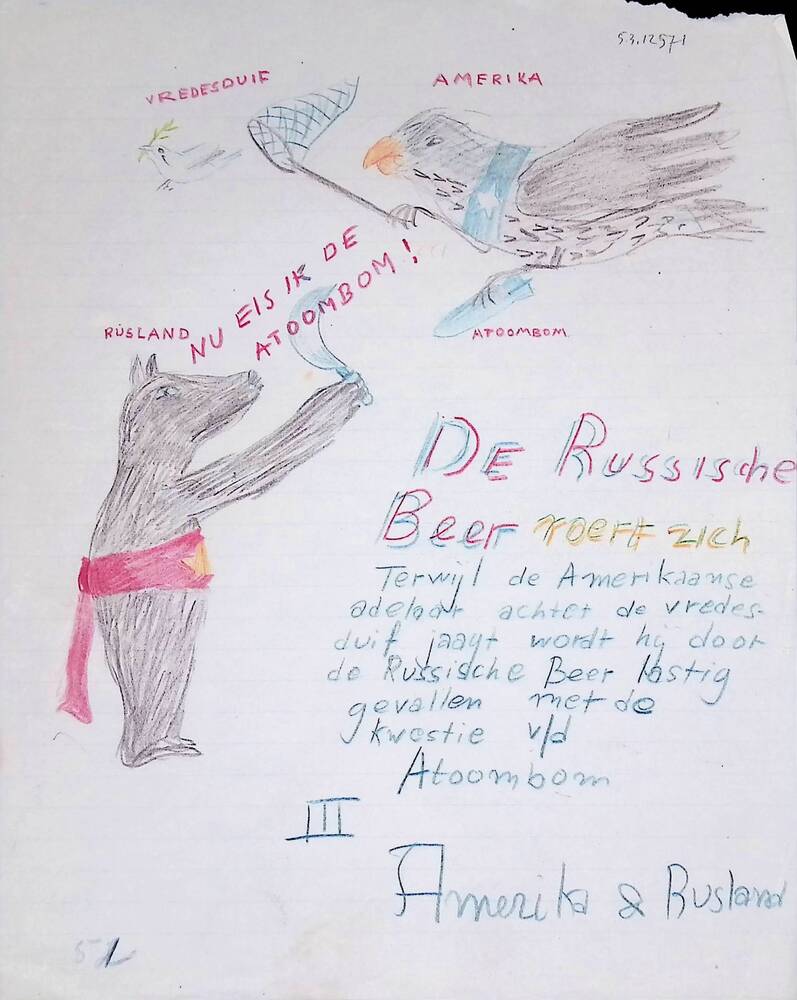 53.12571
VREDESDUIF
AMERIKA
NU EIS IK DE
ATOOMBOM!
RUSLAND
ATOOMBOM
De Russische
Beer roert zich
Terwijl de Amerikaanse
adelaar achter de vredes-
duif jaagt wordt hij door
de Russische Beer lastig
gevallen met de
kwestie v/d
Atoombom
III
Amerika & Rusland